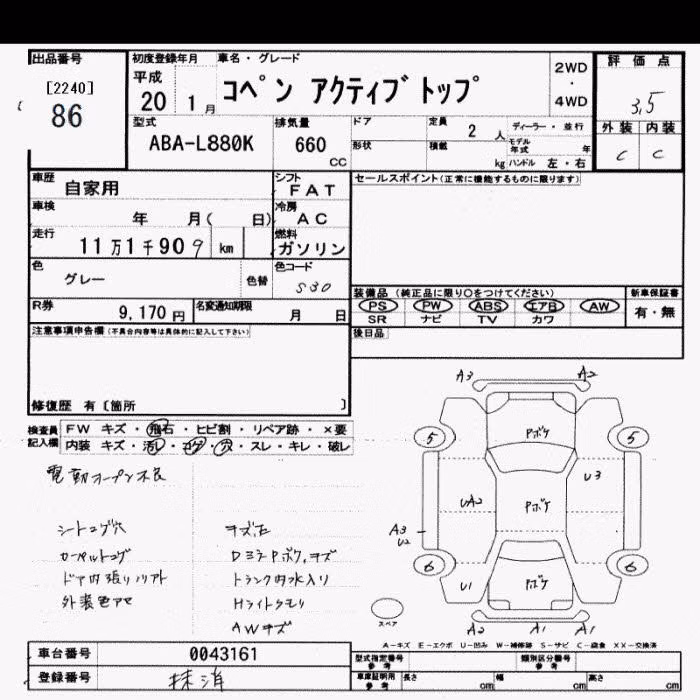 出品番号
[2240]
86
初度登録年月
平成
20 年 1月
車名・グレード
コペン アクティブトップ
2WD
・
4WD
評価点
3.5
外装 内装
C C
型式
ABA-L880K
排気量
660
CC
ドア
形状
定員
2 人
積載
kg
ディーラー・並行
モデル年式 年
ハンドル 左・右
車歴
自家用
シフト
FAT
車検
年 月( 日)
冷房
AC
走行
11万1千909 km
燃料
ガソリン
色
グレー
色替
色コード
S30
R券
9,170円
名変通知期限
月 日
セールスポイント(正常に機能するものに限ります)
装備品(純正品に限り○をつけてください)
PS PW ABS エアB AW
SR ナビ TV カワ
新車保証書
有・無
後日品
注意事項申告欄(不具合内容等は具体的に記入して下さい)
修復歴 有〔箇所 〕
検査員記入欄
FW キズ・飛石・ヒビ割・リペア跡・×要
内装 キズ・汚レ・コゲ・穴・スレ・キレ・破レ
電動オープン不良
シートコゲ穴
カーペットコゲ
ドア内張リソリアト
外装色アセ
キズ凹
Dミラーボケ、キズ
トランク内水入り
Hライトクモリ
AWキズ
A3 A2
5 5
Pボケ
U3
UA2
Pボケ
A3
U2
6 6
U1
Pボケ
スペア
A2 A1 A1
A-キズ E-エクボ U-凹み W-補修跡 S-サビ C-腐食 XX-交換済
車台番号
0043161
登録番号
抹消
型式指定番号
参考
類別区分番号
参考
車庫証明用
参考
長さ cm
幅 cm
高さ cm